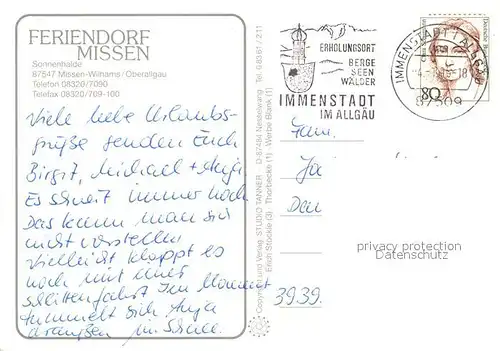 FERIENDORF
MISSEN
Sonnenhalde
87547 Missen-Wilhams/Oberallgäu
Telefon 08320/7090
Telefax 08320/709-100
Viele liebe Urlaubs-
grüße senden Euch
Birgit, Michael + Anja
Es schneit immer noch
Das kann man sich
nicht vorstellen
Vielleicht klappt es
noch mit einer
Schlittenfahrt Im Moment
tummelt sich Anja
draußen im Schnee.
Copyright und Verlag STUDIO TANNER D-87484 Nesselwang Tel. 0 83 61 / 211
Erich Stückle (3) Thorbecke (1) Werbe Blank (1)
ERHOLUNGSORT
BERGE
SEEN
WÄLDER
IMMENSTADT
IM ALLGÄU
IMMENSTADT I ALLGÄU
87509
80
Fam.
Jo
Dan
3939
privacy protection
Datenschutz